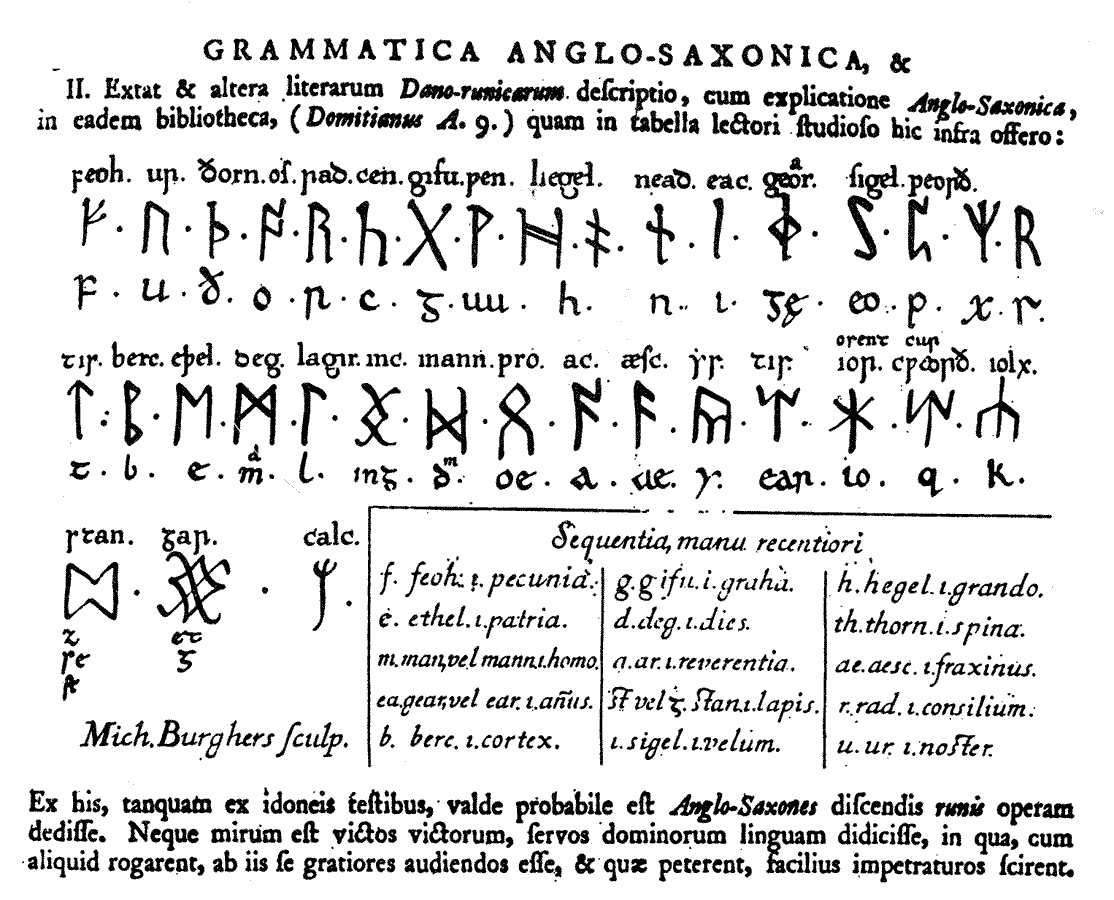 GRAMMATICA ANGLO-SAXONICA, &
II. Extat & altera literarum Dano-runicarum deſcriptio, cum explicatione Anglo-Saxonica,
in eadem bibliotheca, (Domitianus A. 9.) quam in tabella lectori ſtudioſo hic infra offero:
feoh. ur. ðorn. oſ. rad. cen. gifu. pen. hegel. nead. eac. gear. ſigel. peorð.
a
ᚠ · ᚢ · ᚦ · ᚩ · ᚱ · ᚳ · ᚷ · ᚹ · ᚻ · ᚾ · ᛁ · ᛄ · ᛈ · ᛉ · ᚱ
f · u · ð · o · r · c · g · uu · h · n · i · ge · eo · p · x · r.
orent cur
tir. berc. eþel. deg. lagur. inc. mann. pro. ac. æſc. yr. tir. ior. cpeorð. iolx.
ᛏ : ᛒ · ᛖ · ᛗ · ᛚ · ᛝ · ᛞ · ᛟ · ᚪ · ᚫ · ᚣ · ᛠ · ᛡ · ᛢ · ᛣ
d m
t · b · e · m · l · ing · ð · oe · a · ae · y · ear · io · q · k.
ſtan. gar. calc.
z et
ſe g
ſt
Sequentia, manu recentiori
f. feoh. ı. pecunia. g. gifu. i. gratia. h. hegel. ı. grando.
e. ethel. ı. patria. d. deg. ı. dies. th. thorn. ı. spina.
m. man, vel mann. ı. homo. a. ar. ı. reverentia. ae. aesc. ı. fraxinus.
ea. gear, vel ear. ı. añus. ſt vel ᵹ. ſtan. ı. lapis. r. rad. ı. consilium.
b. berc. ı. cortex. ı. sigel. ı. velum. u. ur. ı. noſter.
Mich. Burghers ſculp.
Ex his, tanquam ex idoneis teſtibus, valde probabile eſt Anglo-Saxones diſcendis runis operam
dediſſe. Neque mirum eſt victos victorum, ſervos dominorum linguam didiciſſe, in qua, cum
aliquid rogarent, ab iis ſe gratiores audiendos eſſe, & quæ peterent, facilius impetraturos ſcirent.